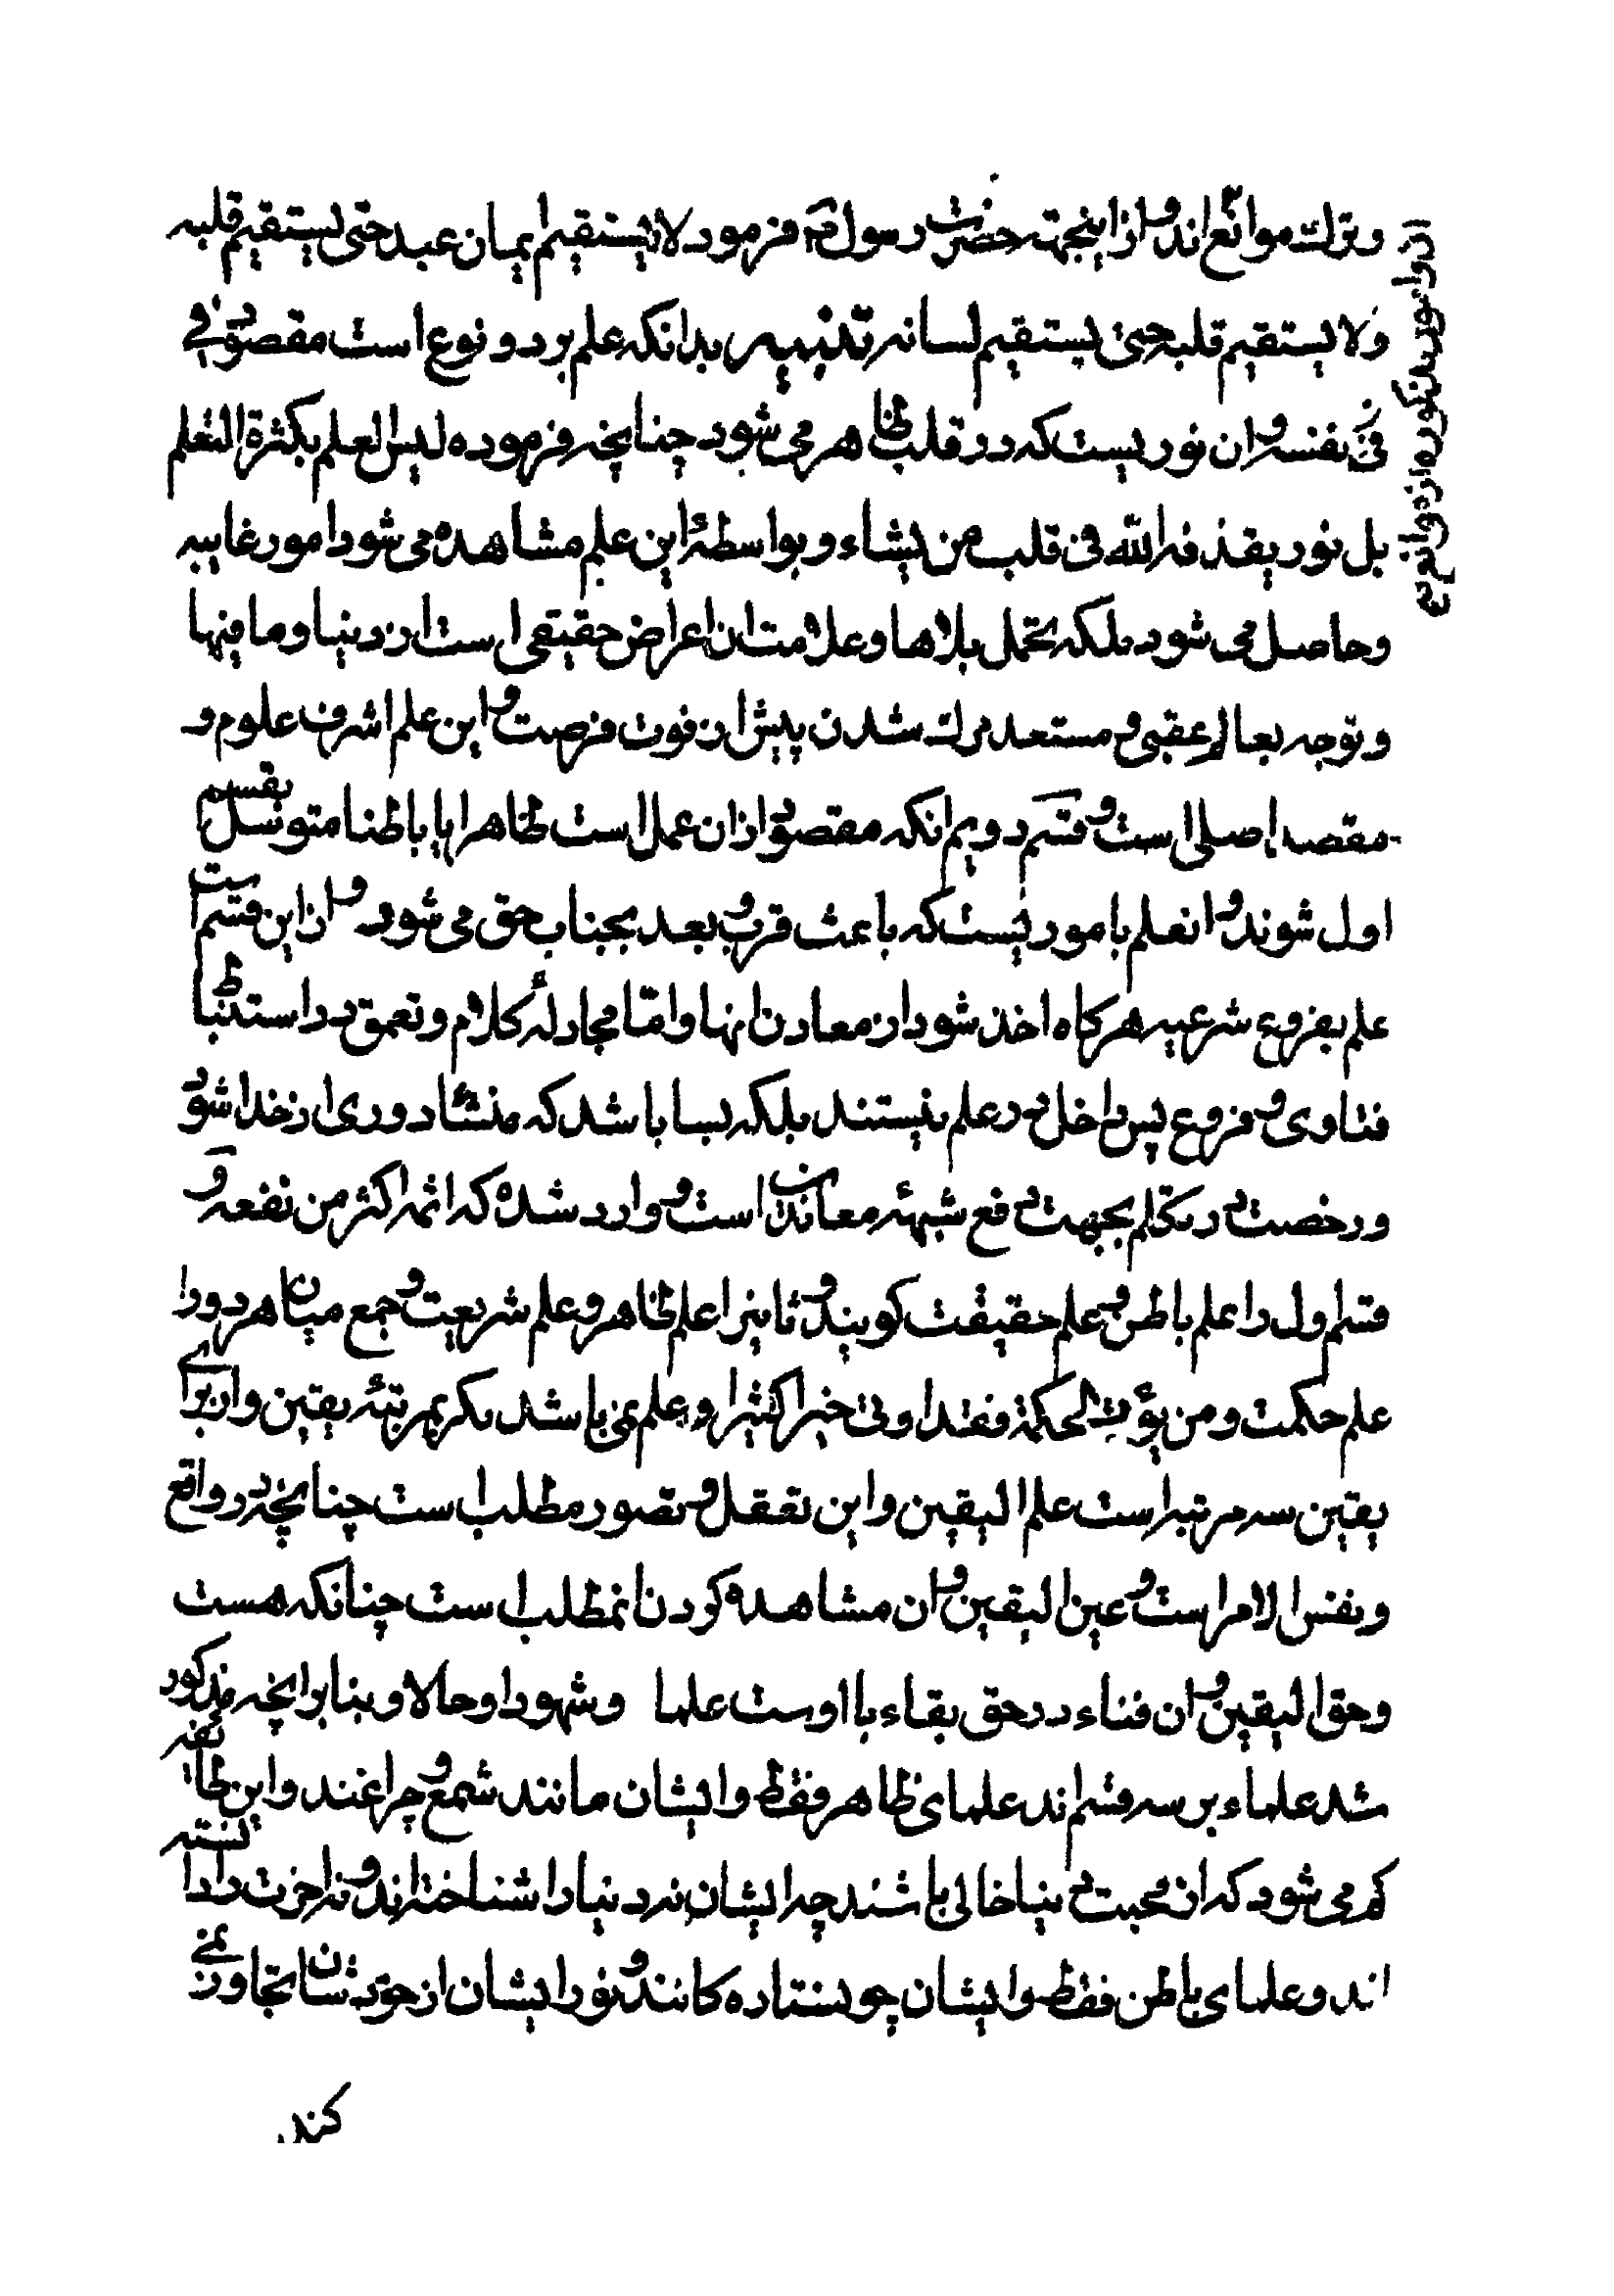 و ترک موانع اند و از اینجهته حضرت رسول ص فرمود لا یستقیم ایمان عبد حتی یستقیم قلبه
ولا یستقیم قلبه حتی یستقیم لسانه تنبیه بدانکه علم بر دو نوع است مقصود فی
فی نفسه و ان نوریست که در قلب ظاهر می شود چنانچه فرموده لیس العلم بکثرة التعلم
بل نور یقذفه الله فی قلب من یشاء و بواسطهٔ این علم مشاهده می شود امور غایبه
و حاصل می شود ملکه تحمل بلاها و علامت ان اعراض حقیقی است از دنیا و ما فیها
و توجه بعالم عقبی و مستعد مرک شدن پیش از فوت فرصت و این علم اشرف علوم و
مقصد اصلی است و قسم دویم انکه مقصود از ان عمل است ظاهرا یا باطنا متوسل بقسم
اول شوند و انعلم بامور یست که باعث قرب و بعد بجناب حق می شود و از این قسم است
علم بفروع شرعیه هرکاه اخذ شود از معادن انها و امّا مجادلهٔ کلام و تعمق در استنباط
فتاوی و فروع پس داخل در علم نیستند بلکه بسا باشد که منشأ دوری از خدا شود
و رخصت در تکلم بجهت دفع شبههٔ معاندان است و وارد شده که اثمه اکثر من نفعه و
قسم اول را علم باطن و علم حقیقت کویند و ثانی را علم ظاهر و علم شریعت و جمع میان هر دو را
علم حکمت و من یؤت الحکمة فقد اوتی خیرا کثیرا و علم نمی باشد مکر بمرتبهٔ یقین و از برای
یقین سه مرتبه است علم الیقین و این تعقل و تصور مطلب است چنانچه در واقع
و نفس الامر است و عین الیقین و ان مشاهده کردن انمطلب است چنانکه هست
و حق الیقین و ان فناء در حق بقاء با اوست علما و شهودا و حالا و بنا بر انچه مذکور
شد علماء بر سه قسم اند علمای ظاهر فقط و ایشان مانند شمع و چراغند و این طایفه
کم می شود که از محبت دنیا خالی باشند چه ایشان نه دنیا را شناخته اند و نه اخرت را دانسته
اند و علمای باطن فقط و ایشان چو ستاره کانند و نور ایشان از خودشان تجاوز نمی
کند